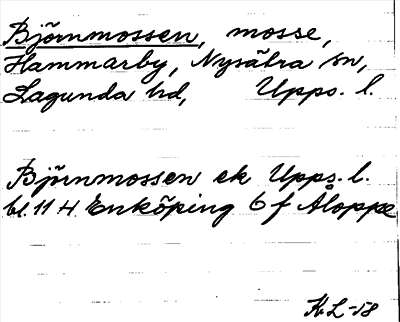 Björnmossen, mosse,
Hammarby, Nysätra sn,
Lagunda hd, Upps. l.
Björnmossen ek Upps. l.
bl. 11 H Enköping 6 f Åloppe
KL-58